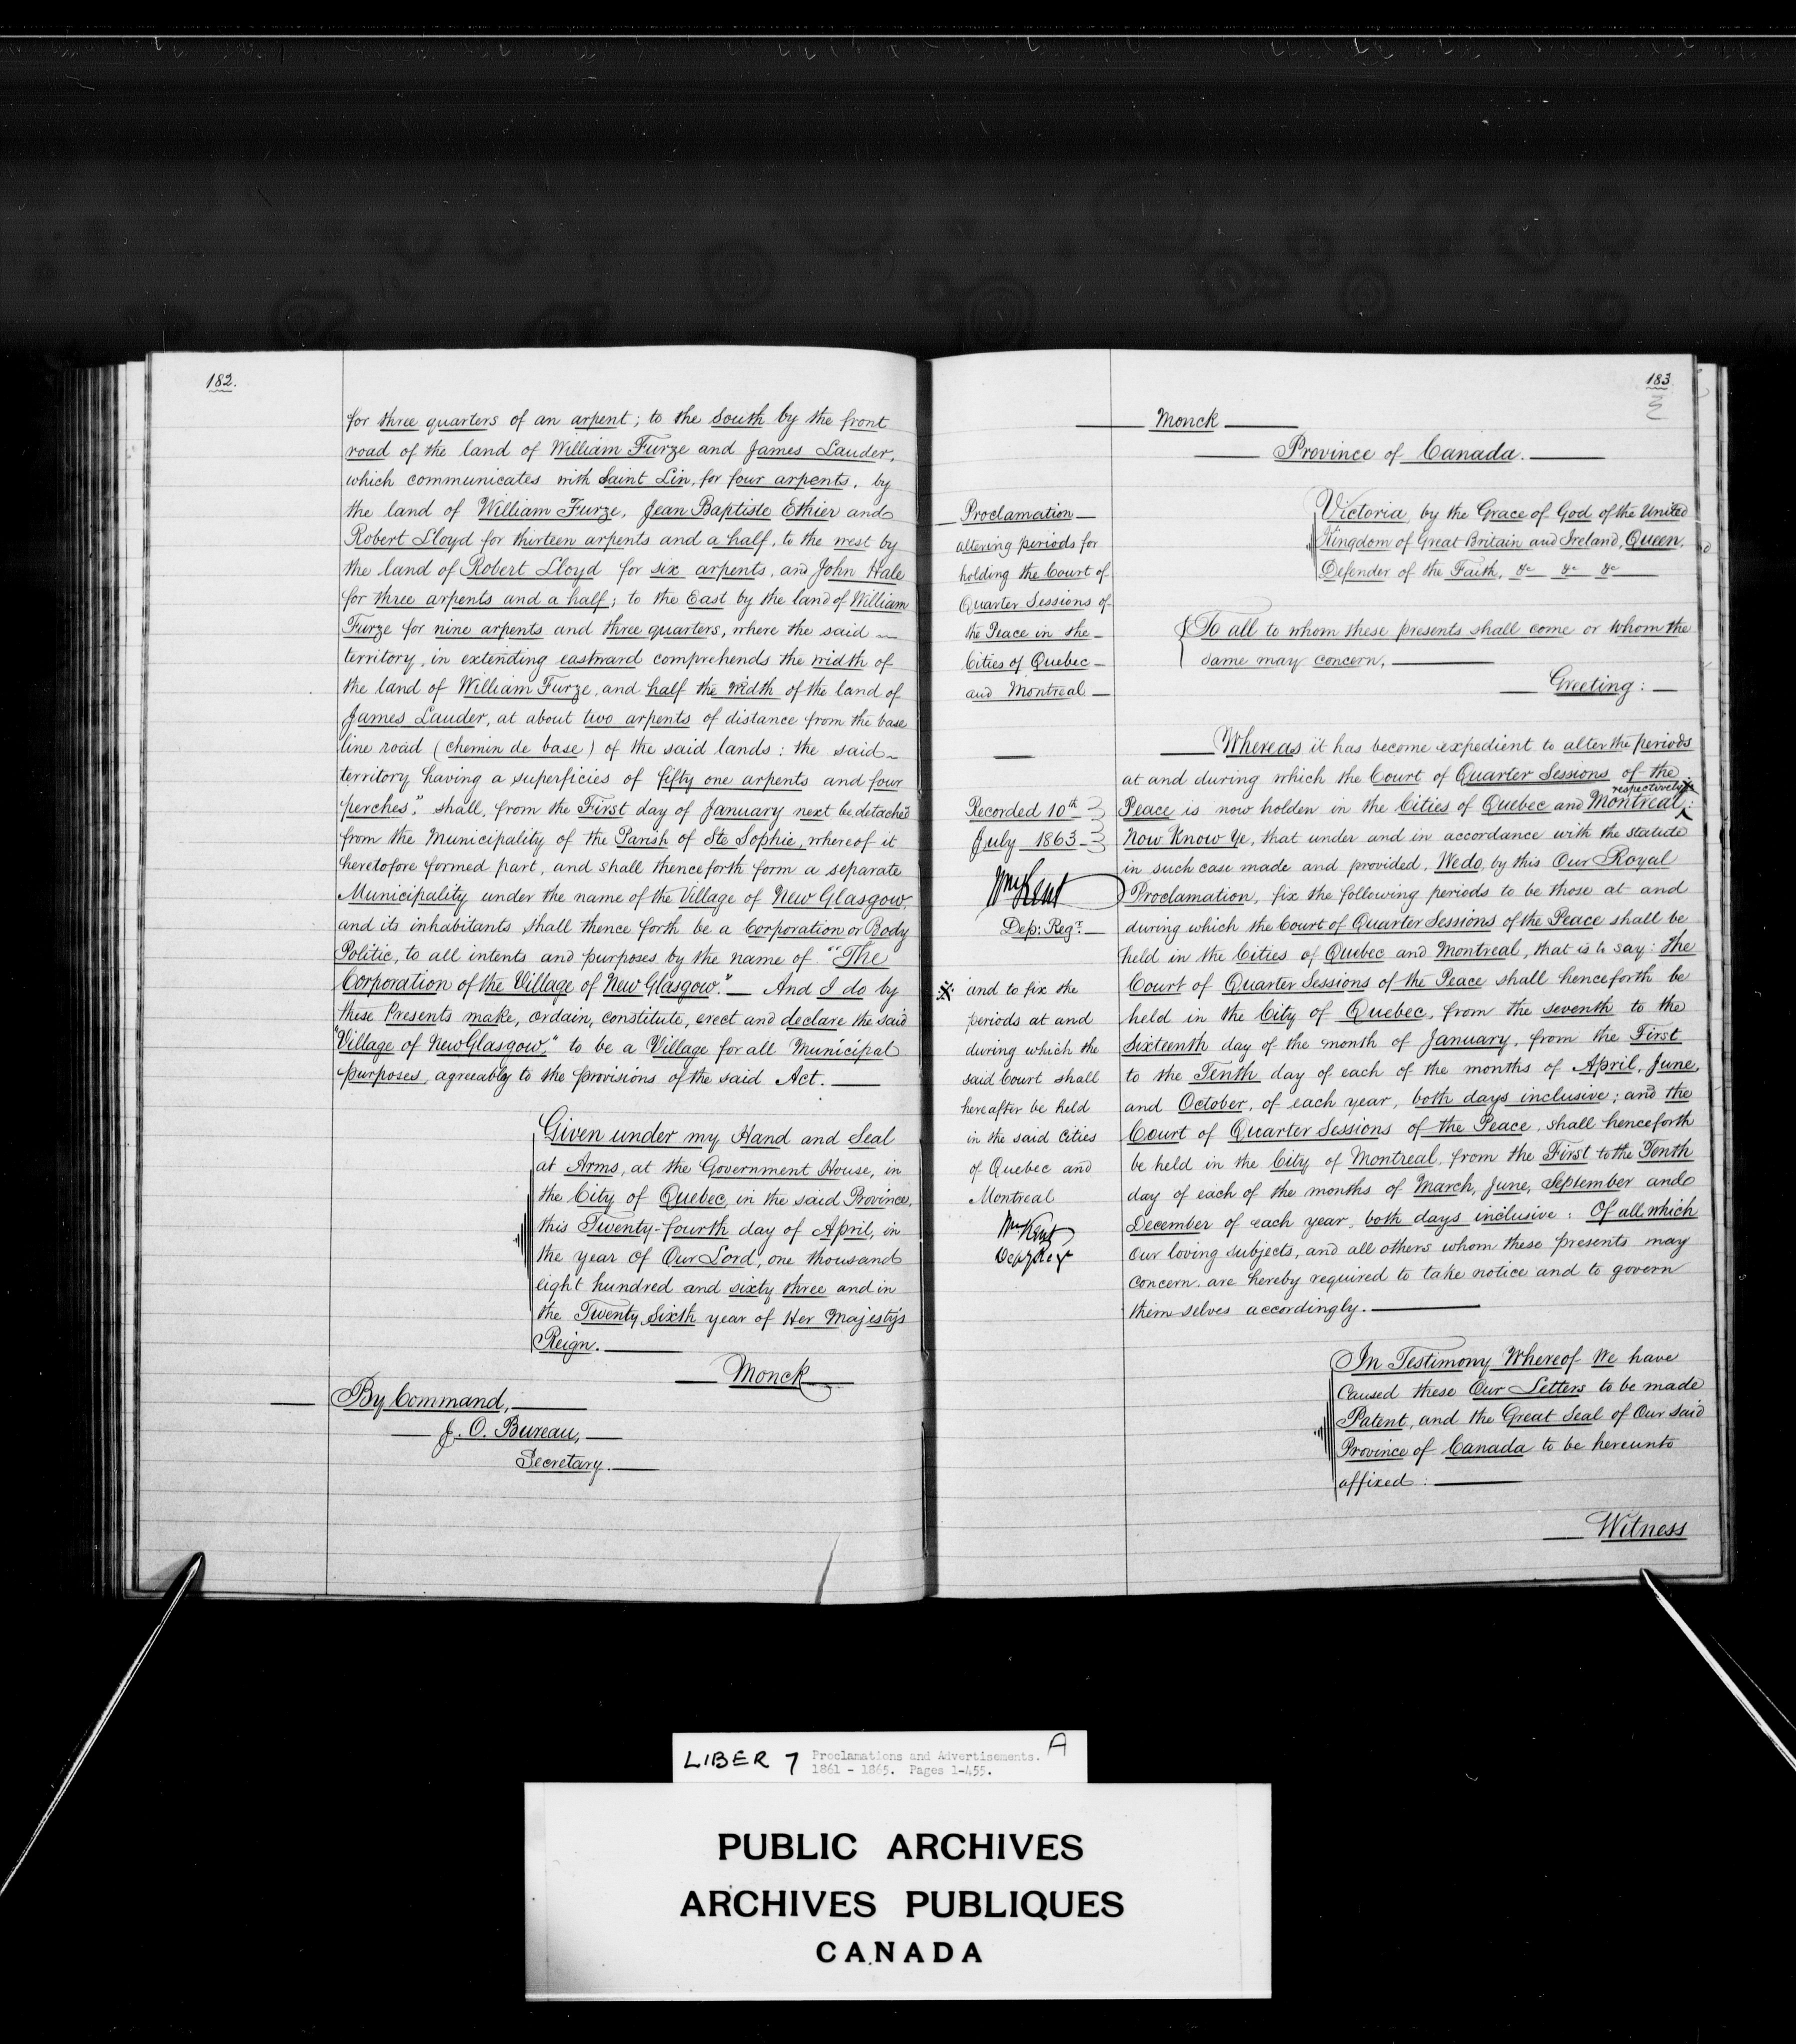 182.
for three quarters of an arpent; to the South by the front
road of the land of William Furze and James Lauder,
which communicates with Saint Lin, for four arpents, by
the land of William Furze, Jean Baptiste Ethier and
Robert Lloyd for thirteen arpents and a half, to the west by
the land of Robert Lloyd for six arpents, and John Hale
for three arpents and a half; to the East by the land of William
Furze for nine arpents and three quarters, where the said
territory, in extending eastward comprehends the width of
the land of William Furze, and half the width of the land of
James Lauder, at about two arpents of distance from the base
line road (chemin de base) of the said lands: the said
territory having a superficies of fifty one arpents and four
perches", shall, from the First day of January next be detached
from the Municipality of the Parish of Ste Sophie, whereof it
heretofore formed part, and shall thenceforth form a separate
Municipality under the name of the Village of New Glasgow,
and its inhabitants shall thence forth be a Corporation or Body
Politic, to all intents and purposes by the name of "The
Corporation of the Village of New Glasgow." And I do by
these Presents make, ordain, constitute, erect and declare the said
"Village of New Glasgow," to be a Village for all Municipal
purposes, agreeably to the provisions of the said Act.
Given under my Hand and Seal
at Arms, at the Government House, in
the City of Quebec, in the said Province,
this Twenty-fourth day of April, in
the year of Our Lord, one thousand
eight hundred and sixty three and in
the Twenty Sixth year of Her Majesty's
Reign.
Monck
By Command,
J. O. Bureau,
Secretary.
183
Monck
Province of Canada.
Proclamation
altering periods for
holding the Court of
Quarter Sessions of
the Peace in the
Cities of Quebec
and Montreal
Recorded 10th
July 1863
Wm Kent
Dep: Regr.
※ and to fix the
periods at and
during which the
said Court shall
hereafter be held
in the said Cities
of Quebec and
Montreal
Wm Kent
Depy Regr
Victoria, by the Grace of God of the United
Kingdom of Great Britain and Ireland, Queen,
Defender of the Faith, &c &c &c
To all to whom these presents shall come or whom the
same may concern,
Greeting:
Whereas it has become expedient to alter the periods
at and during which the Court of Quarter Sessions of the
respectively※
Peace is now holden in the Cities of Quebec and Montreal:
Now Know Ye, that under and in accordance with the statute
in such case made and provided, We do, by this Our Royal
Proclamation, fix the following periods to be those at and
during which the Court of Quarter Sessions of the Peace shall be
held in the Cities of Quebec and Montreal, that is to say: The
Court of Quarter Sessions of the Peace shall henceforth be
held in the City of Quebec, from the seventh to the
Sixteenth day of the month of January, from the First
to the Tenth day of each of the months of April, June,
and October, of each year, both days inclusive; and the
Court of Quarter Sessions of the Peace, shall henceforth
be held in the City of Montreal, from the First to the Tenth
day of each of the months of March, June, September and
December of each year, both days inclusive: Of all which
Our loving subjects, and all others whom these presents may
concern, are hereby required to take notice and to govern
them selves accordingly.
In Testimony Whereof We have
caused these Our Letters to be made
Patent, and the Great Seal of Our said
Province of Canada to be hereunto
affixed:
Witness
LIBER 7 Proclamations and Advertisements. A
1861 - 1865. Pages 1-455.
PUBLIC ARCHIVES
ARCHIVES PUBLIQUES
CANADA